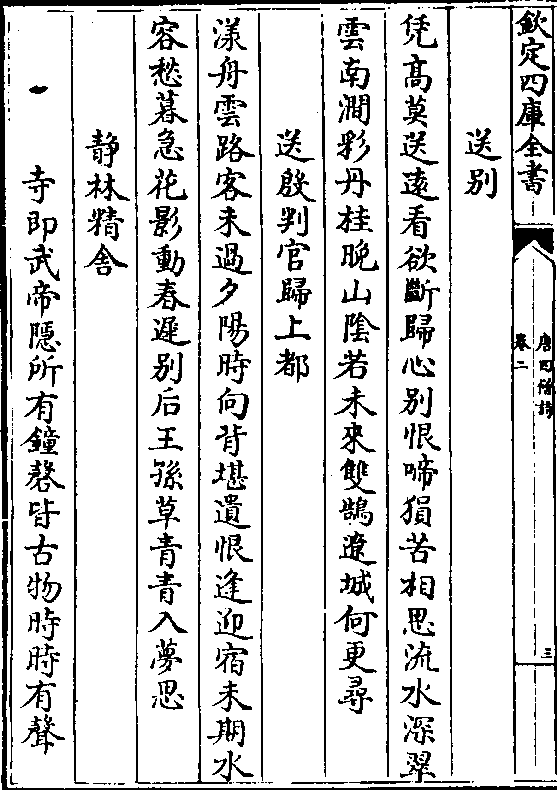 欽定四庫全書
唐四僧詩
卷二
三
送別
凭高莫送遠看欲斷歸心別恨啼猿苦相思流水深翠
雲南澗影丹桂晚山陰若未來雙鵠遼城何更尋
送殷判官歸上都
漾舟雲路客來過夕陽時向背堪遺恨逢迎宿未期水
容愁暮急花影動春遲別后王孫草青青入夢思
靜林精舍
寺即武帝隱所有鐘磬皆古物時時有聲